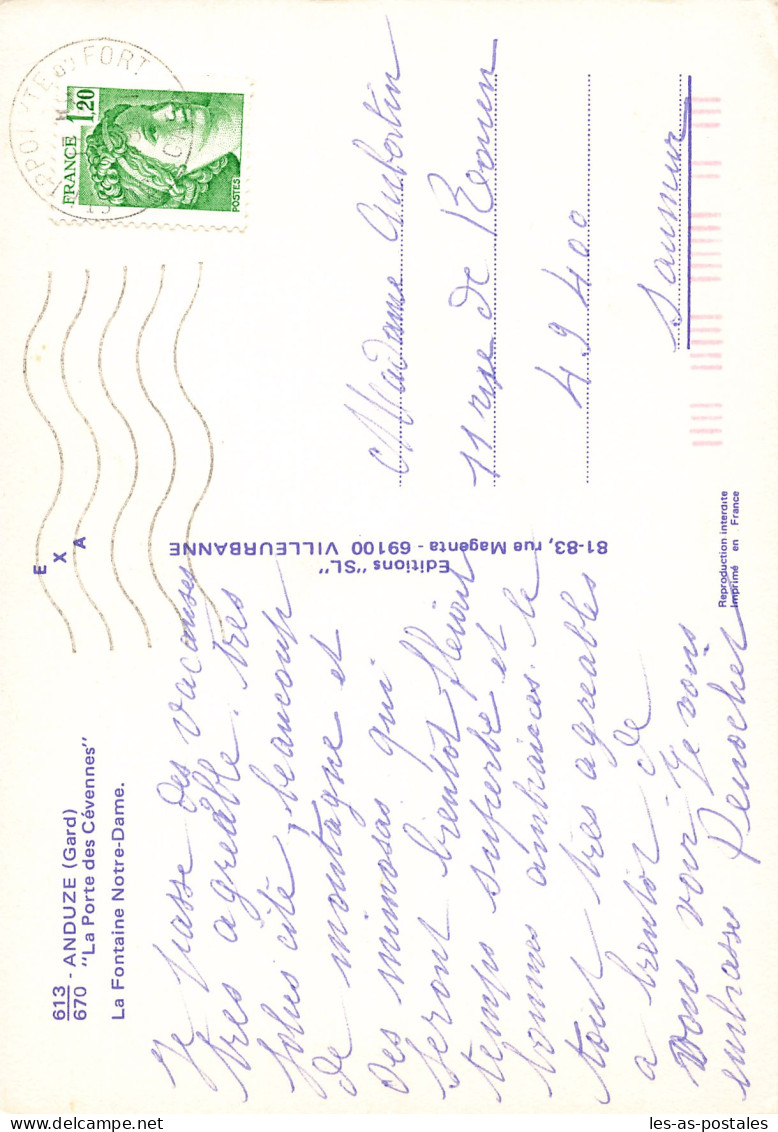 613
670 - ANDUZE (Gard)
"La Porte des Cévennes"
La Fontaine Notre-Dame.
Je passe des vacanses
tres agréable. tres
jolus cite, beaucoup
de montagne et
des mimosas qui
seront bientot fleurit
temps superbe et le
tout tres agreables
a bientot de
vous voir. Je vous
embrasse
E
X
A
Editions "SL"
81-83, rue Magenta - 69100 VILLEURBANNE
Reproduction interdite
Imprimé en France
FORT
FRANCE 1,20
POSTES
Madame
11 rue de Rouen
49400
Saumur
www.delcampe.net
les-as-postales